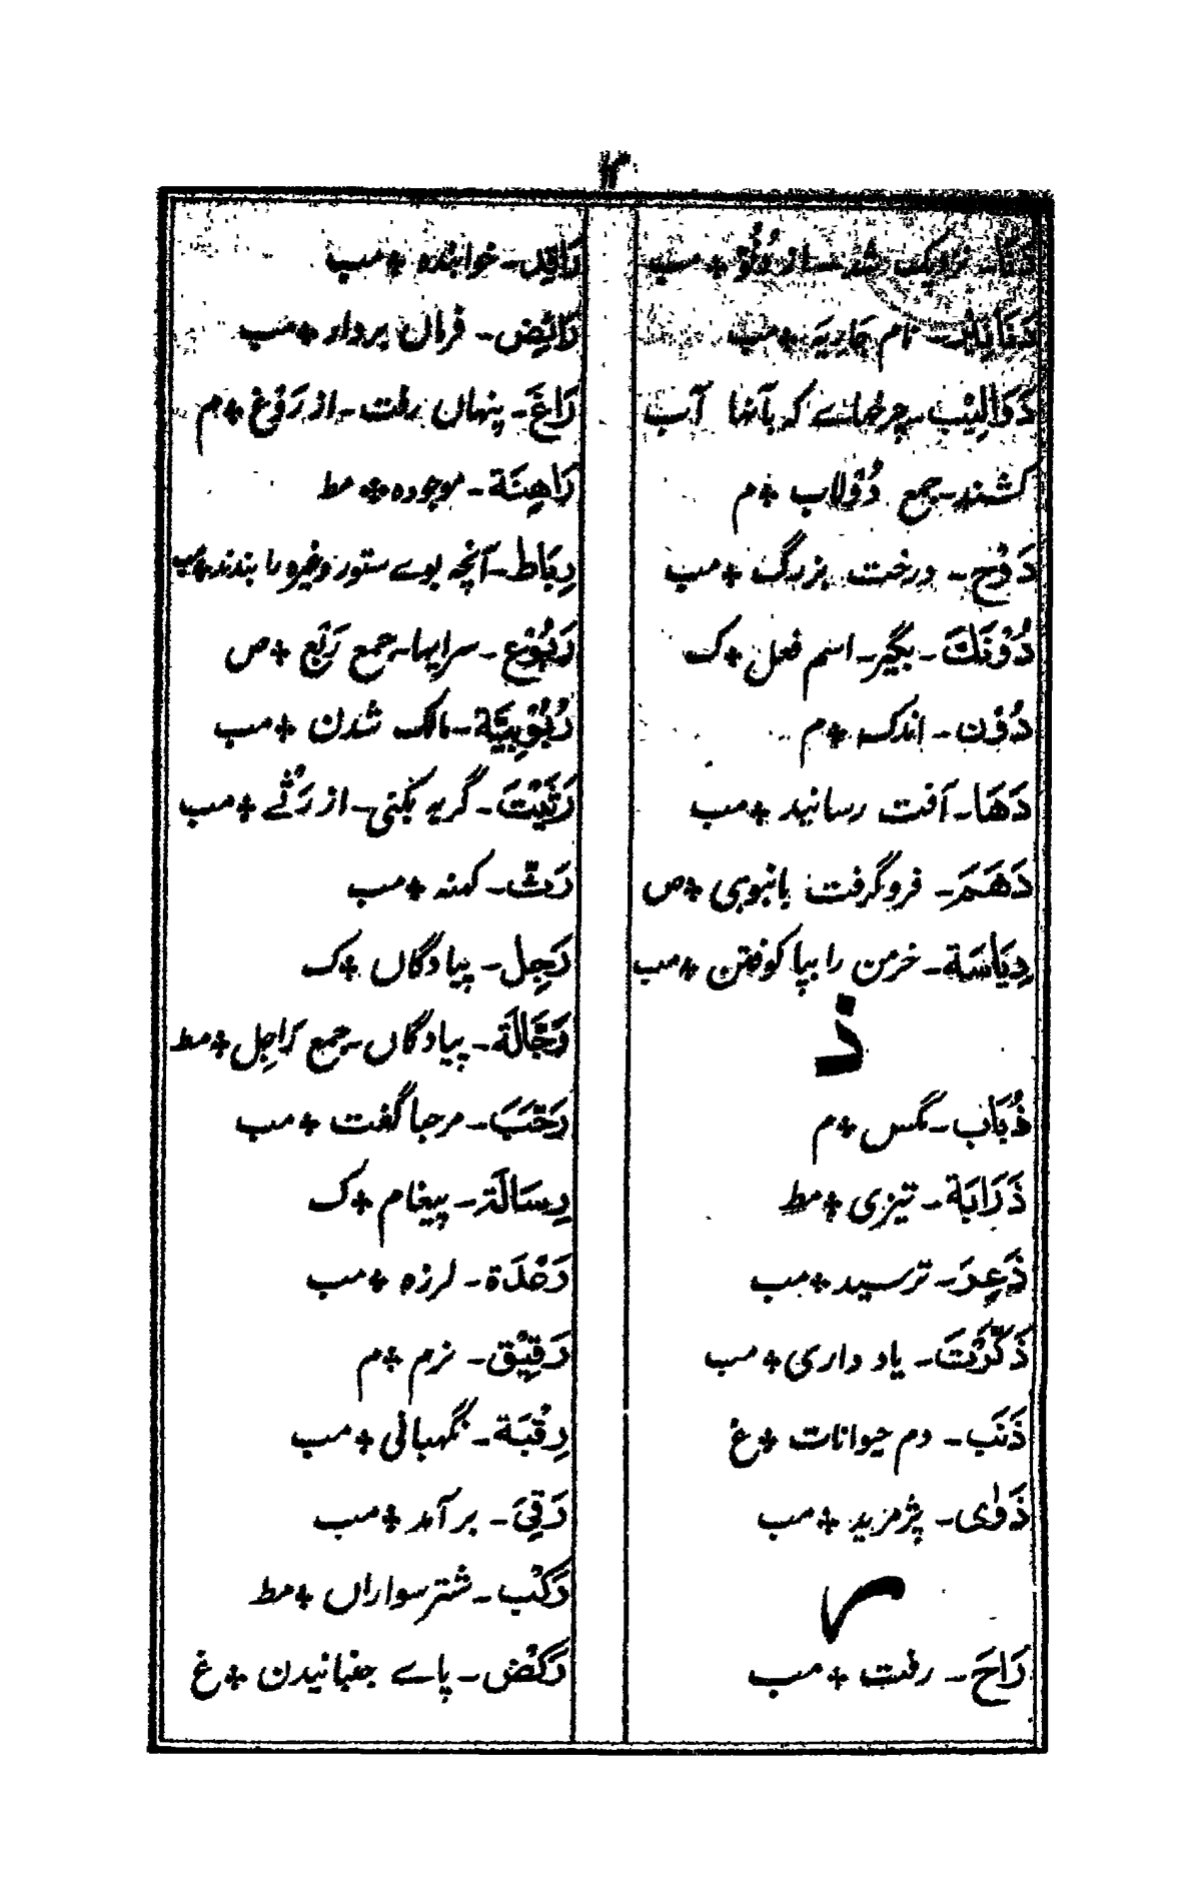 ۱۲
دَنَا۔ نزدیک شد۔ از دُنُوّ + مب
دَنَانِیر۔ نام جاریہ + مب
دَوَالِیْب۔ چرخہائے کہ بآنہا آب
کشند۔ جمع دُوْلاب + م
دَوْح۔ درخت بزرگ + مب
دُوْنَكَ۔ بگیر۔ اسم فعل + ک
دُوْن۔ اندک + م
دَهَا۔ آفت رسانید + مب
دَهَمَ۔ فروگرفت بانبوہی + ص
دِیَاسَة۔ خرمن را بپا کوفتن + مب
ذ
ذُبَاب۔ مگس + م
ذَرَابَة۔ تیزی + مط
ذَعِرَ۔ ترسید + مب
ذَکَّرْتَ۔ یاد داری + مب
ذَنَب۔ دم حیوانات + غ
ذَوٰى۔ پژمرید + مب
ر
رَاحَ۔ رفت + مب
رَاقِد۔ خوابندہ + مب
رَائِض۔ فرمان بردار + مب
رَاغَ۔ پنہان رفت۔ از رَوْغ + م
رَاهِنَة۔ موجودہ + مط
رِبَاط۔ آنچہ بوے ستور وغیرہ را بندند + مب
رَبُوْع۔ سرایہا۔ جمع رَبْع + ص
رُبُوْبِیَّة۔ مالک شدن + مب
رَثَیْتَ۔ گریہ بکنی۔ از رَثْے + مب
رَثّ۔ کہنہ + مب
رَجِل۔ پیادگاں + ک
رَجَّالَة۔ پیادگاں۔ جمع رَاجِل + مط
رَحَّبَ۔ مرحبا گفت + مب
رِسَالَة۔ پیغام + ک
رَعْدَة۔ لرزہ + مب
رَقِیْق۔ نرم + م
رِقْبَة۔ نگہبانی + مب
رَقِیَ۔ بر آمد + مب
رَکْب۔ شتر سواراں + مط
رَکْض۔ پاے جنبانیدن + غ